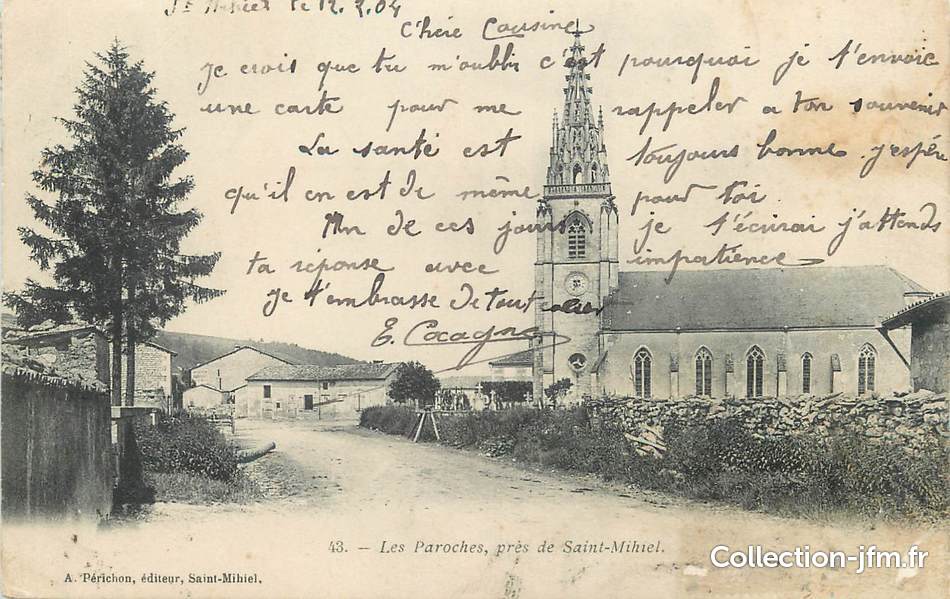 St Mihiel le 12.2.04
Chère Cousine
Je crois que tu m'oublis c'est pourquoi je t'envoie
une carte pour me rappeler a ton souvenir
La santé est toujours bonne. j'espère
qu'il en est de même pour toi
Un de ces jours je t'écirai j'attends
ta réponse avec impatience
Je t'embrasse de tout cœur
E. Cocagne
43. - Les Paroches, près de Saint-Mihiel.
A. Périchon, éditeur, Saint-Mihiel.
Collection-jfm.fr